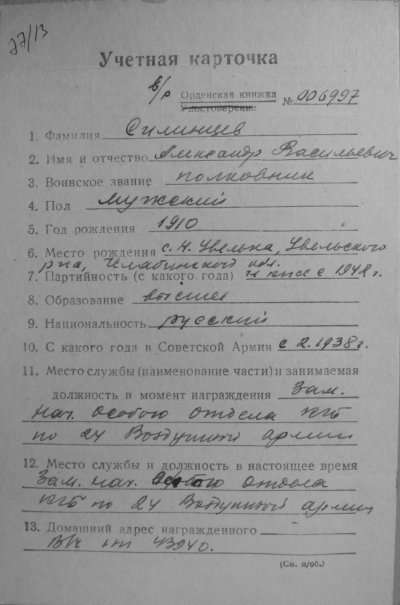 27/13
Учетная карточка
б/р Орденская книжка
Удостоверение № 006997
1. Фамилия Силинцев
2. Имя и отчество Александр Васильевич
3. Воинское звание полковник
4. Пол мужской
5. Год рождения 1910
6. Место рождения с. Н. Увелька, Увельского
р-на, Челябинской обл.
7. Партийность (с какого года) чл. КПСС с 1942 г.
8. Образование высшее
9. Национальность русский
10. С какого года в Советской Армии с 2.1938 г.
11. Место службы (наименование части) и занимаемая
должность в момент награждения Зам.
нач. Особого отдела КГБ
по 24 Воздушной армии
12. Место службы и должность в настоящее время
Зам. нач. Особого отдела
КГБ по 24 Воздушной армии
13. Домашний адрес награжденного
В/ч пп 43940.
(См. н/об.)